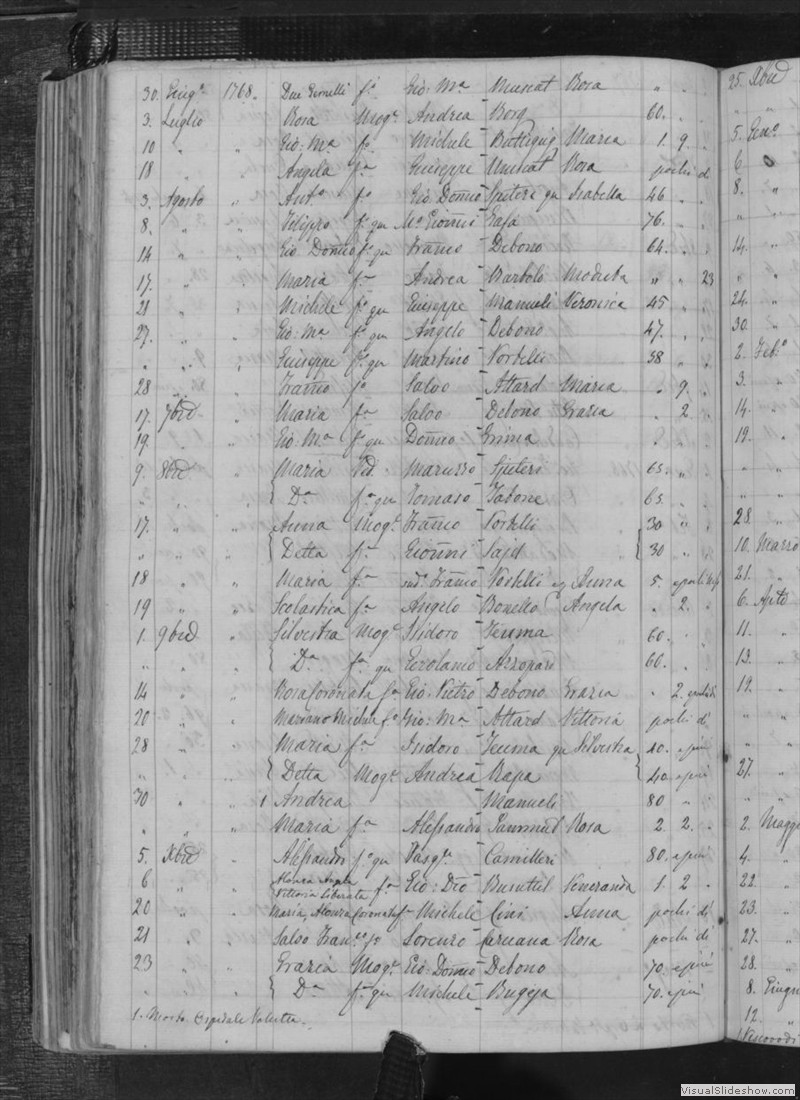 30. Giug.o 1768. Due Gemelli f.i Gio: M.a Muscat Rosa " "
3. Luglio " Rosa Mog.e Andrea Borg 60. "
10 " " Gio: M.a f.o Michele Buttigieg Maria 1. 9. "
18 " " Angela f.a Giuseppe Muscat Rosa pochi di
3. Agosto " Ant.o f.o Gio Dom.co Spiteri qu Isabella 46 " "
8. " " Filippo f.o qu M.o Gio:nni Rapa 76. "
14 " " Gio Dom:co f.o qu Fran:co Debono 64. "
17. " " Maria f.a Andrea Bartolo Modesta " " 23
21 " " Michele f.o qu Giuseppe Manueli Veronica 45 " "
27. " " Gio: M.a f.o qu Angelo Debono 47. "
" " " Giuseppe f.o qu Martino Portelli 38 " "
28 " " Fran:co f.o Salvo Attard Maria " 9. "
17. 7bre " Maria f.a Salvo Debono Grazia " 2. "
19. " " Gio: M.a f.o qu Dom:co Grima
9. 8bre " Maria Ved. Maruzzo Spiteri 65. " "
" " " D.a f.a qu Tomaso Tabone 65. "
17. " " Anna Mog.e Fran:co Portelli 30 " "
" " " Detta f.a Gio:nni Sajd 30 " "
18 " " Maria f.a Fran:co Portelli Anna 5.
19 " " Scolastica f.a Angelo Bonello Angela " 2. "
1. 9bre " Silvestra Mog.e Isidoro Teuma 60. "
" " " D.a f.a qu Gerolamo Azzopardi 60. "
14 " " Rosa Coronata f.a Gio: Pietro Debono Grazia " 2.
20 " " Mariano Michele f.o Gio: M.a Attard Vittoria pochi di
28 " " Maria f.a Isidoro Teuma qu Silvestra 40. e più
" " " Detta Mog.e Andrea Rapa 40 e più
30 " " 1 Andrea Manueli 80 " "
" " " Maria f.a Alessandro Rosa 2. 2. "
5. Xbre " Alessandro f.o qu Pasq.le Camilleri 80. e più
6 " " Vittoria Liberata f.a Gio: Dco Buruttil Veneranda 1. 2 "
20 " " Maria, Coronata f.a Michele Cini Anna pochi di
21 " " Salvo Fran.co f.o Lorenzo Caruana Rosa pochi di
23 " " Grazia Mog.e Gio: Dom:co Debono 70. e più
" " " D.a f.a qu Michele Bugeja 70. e più
1. Morto Ospedale Valletta.
25. Xbre
" "
5. Gen.o
6
8. "
" "
14. "
" "
24. "
30. "
2. Feb.o
3. "
14. "
19. "
" "
" "
28. "
10. Marzo
21. "
6.
11. "
13. "
19. "
" "
" "
27. "
" "
2. Maggio
4. "
22. "
23. "
27. "
28. "
8. Giugn
12. "
VisualSlideshow.com